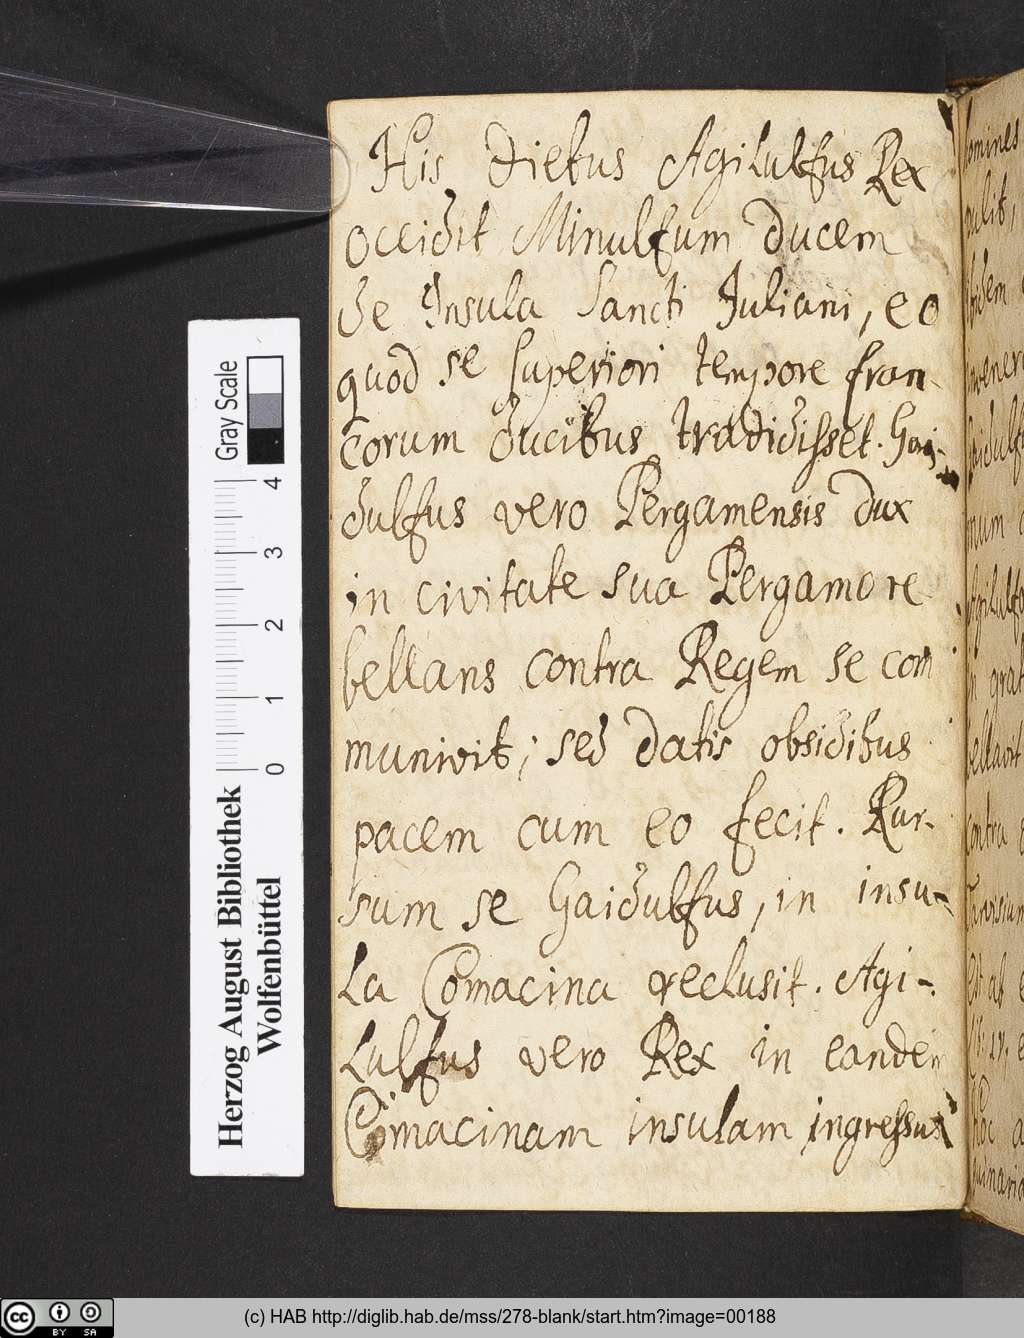 His diebus Agilulfus Rex
occidit Minulfum ducem
de Insula Sancti Juliani, eo
quod se superiori tempore fran-
corum ducibus tradidisset. Gai-
dulfus vero Pergamensis dux
in civitate sua Pergamo re
bellans contra Regem se com
munivit; sed datis obsidibus
pacem cum eo fecit. Rur-
sum se Gaidulfus, in insu-
la Comacina reclusit. Agi-
lulfus vero Rex in eandem
Comacinam insulam ingressus
Gray Scale
4
3
2
1
0
Herzog August Bibliothek
Wolfenbüttel
contra
(c) HAB http://diglib.hab.de/mss/278-blank/start.htm?image=00188
cc BY SA